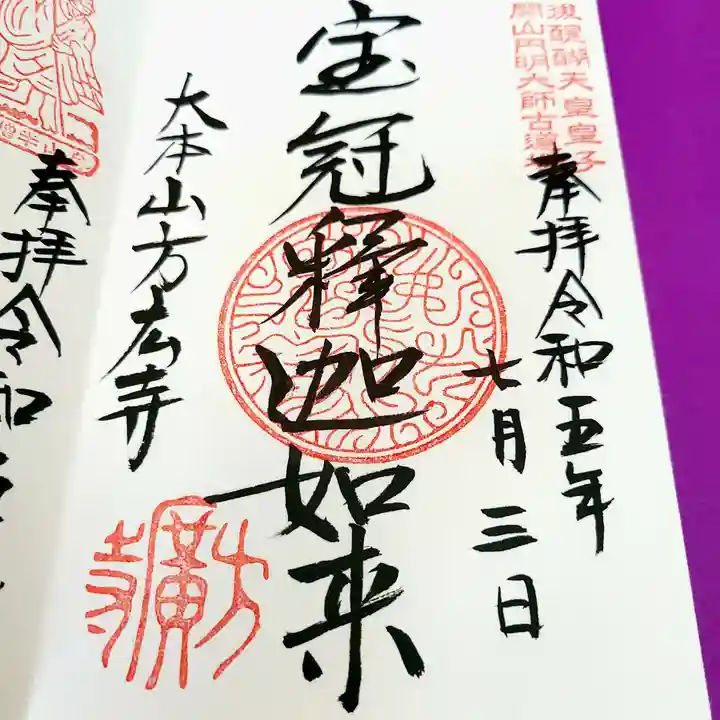 後醍醐天皇皇子
開山円明大師古道場
奉拝令和五年
七月三日
宝冠釋迦如来
大本山方広寺
方廣寺
奉拝令和